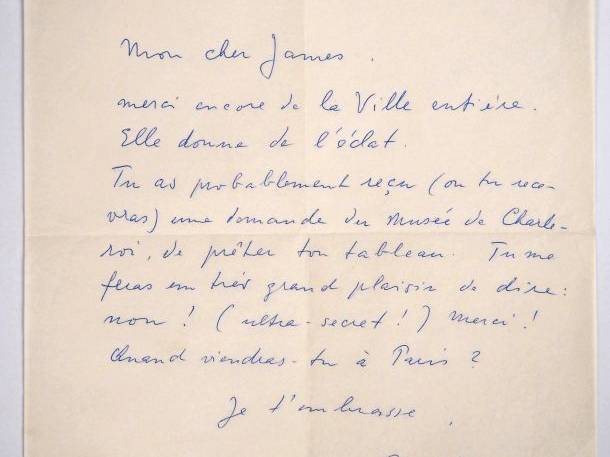 Mon cher James.
merci encore de la Ville entière.
Elle donne de l'éclat.
Tu as probablement reçu (ou tu rece-
vras) une demande du Musée de Charle-
roi, de prêter ton tableau. Tu me
feras un très grand plaisir de dire:
non! (ultra-secret!) Merci!
Quand viendras-tu à Paris?
Je t'embrasse,